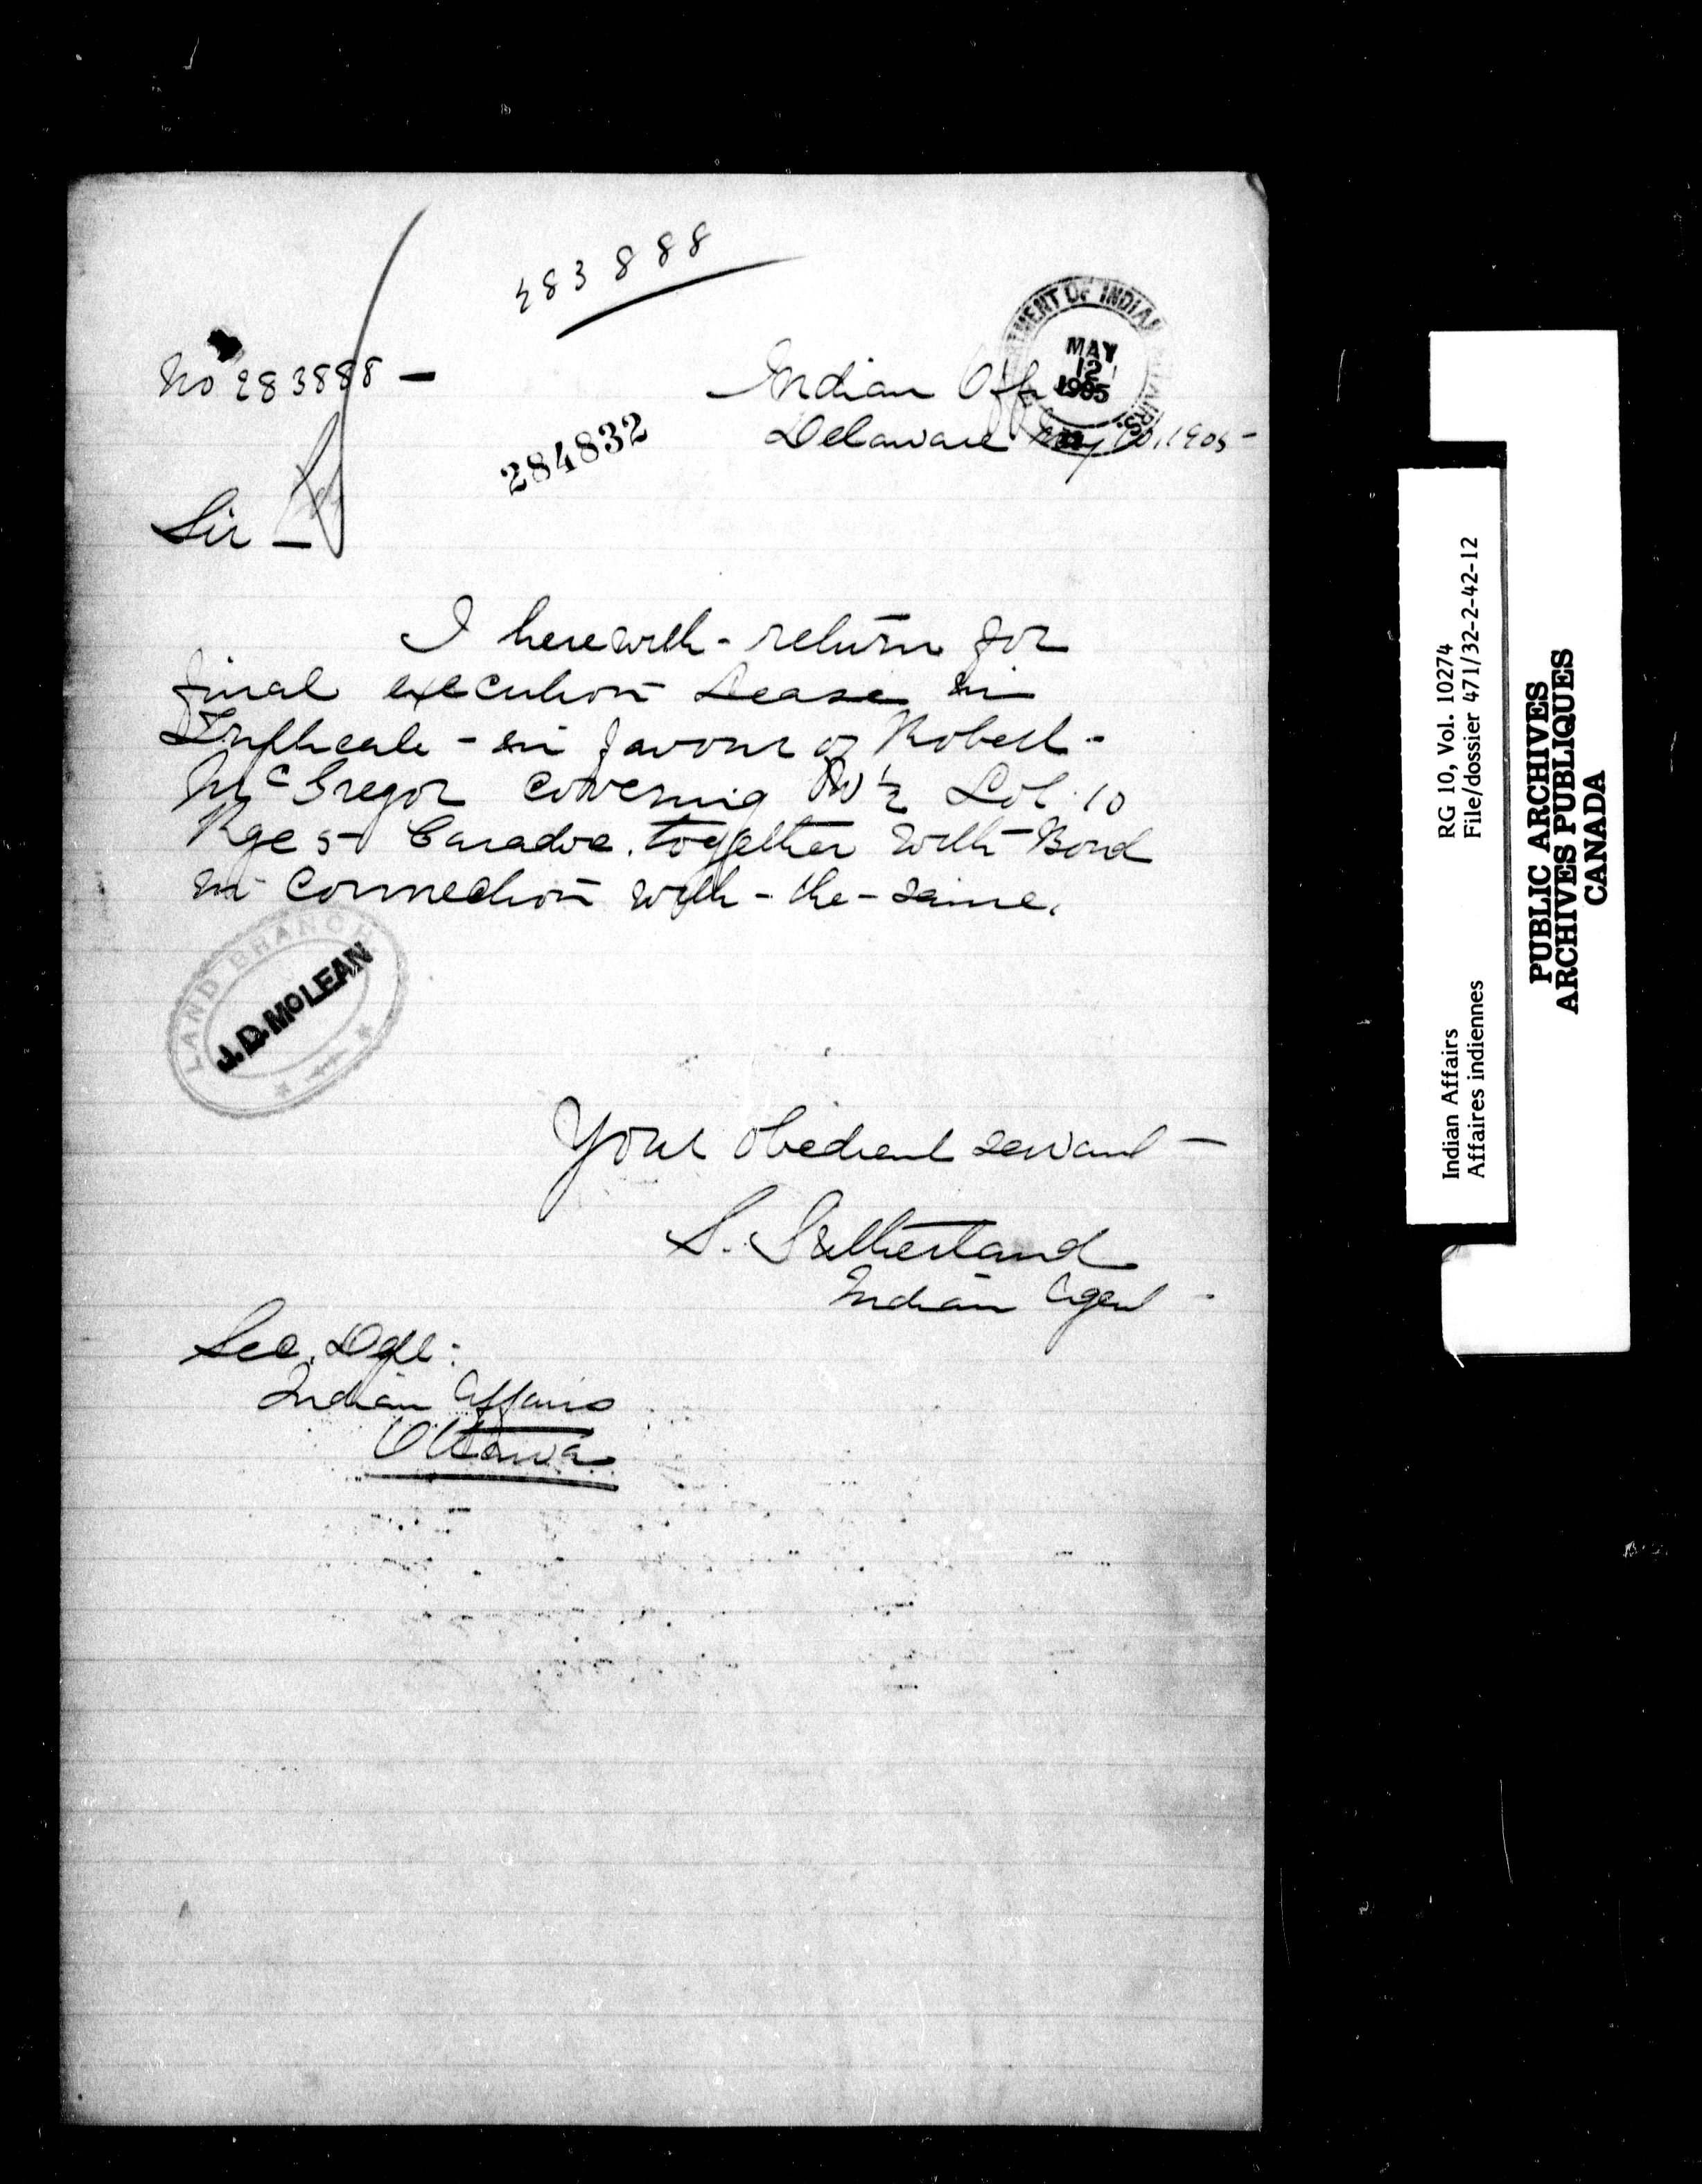 283888
No 283888 -
Indian Off
DEPARTMENT OF INDIAN AFFAIRS.
MAY
12
1905
Delaware May 10, 1905 -
284832
Sir -
I herewith - return for
final execution Lease in
Triplicate - in favour of Robert -
McGregor covering 1/2 Lot 10
Rge 5 Caradoc. together with Bond
in connection with - the - same.
LAND BRANCH
J. D. McLEAN
Your obedient servant -
S. Sutherland
Indian Agent -
Sec. Dept:
Indian Affairs
Ottawa
Indian Affairs
Affaires indiennes
RG 10, Vol. 10274
File/dossier 471/32-2-42-12
PUBLIC ARCHIVES
ARCHIVES PUBLIQUES
CANADA